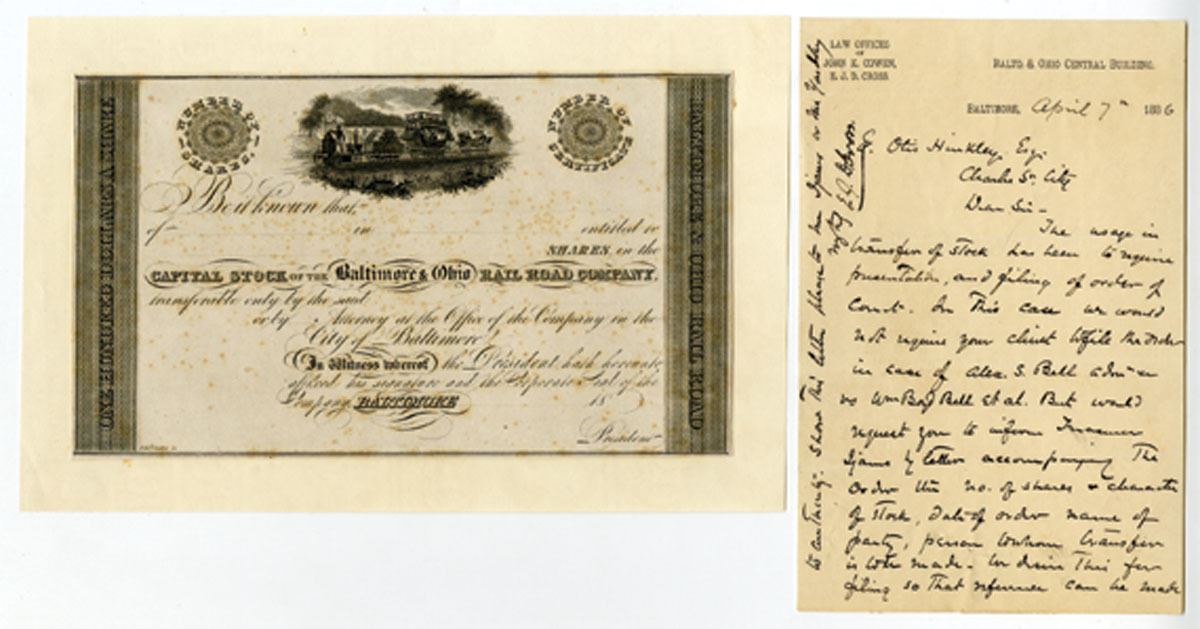 NUMBER OF SHARES.
NUMBER OF CERTIFICATE
ONE HUNDRED DOLLARS A SHARE
BALTIMORE & OHIO RAIL ROAD
Be it known that,
of in entitled to
SHARES, in the
CAPITAL STOCK OF THE Baltimore & Ohio RAIL ROAD COMPANY,
transferable only by the said
or by Attorney at the Office of the Company in the
City of Baltimore
In Witness whereof the President hath hereunto
affixed his signature and the Corporate Seal of the
Company. BALTIMORE 18
President
LAW OFFICES
OF
JOHN K. COWEN,
E. J. D. CROSS
BALTO. & OHIO CENTRAL BUILDING.
BALTIMORE, April 7th 1886
Otis Hinkley, Esq.
Charles St. City
Dear Sir -
The usage in
transfer of stock has been to require
presentation, and filing of order of
Court. In this case we would
not require your client to file the order
in case of Alex. S. Bell
vs Bell et al. But would
request you to inform Treasurer
Ijams by letter accompanying the
order the no. of shares & character
of stock, date of order name of
party, person to whom transfer
is to be made - We desire this for
filing so that reference can be made
to authority. Show this letter please to Mr Ijams or Mr